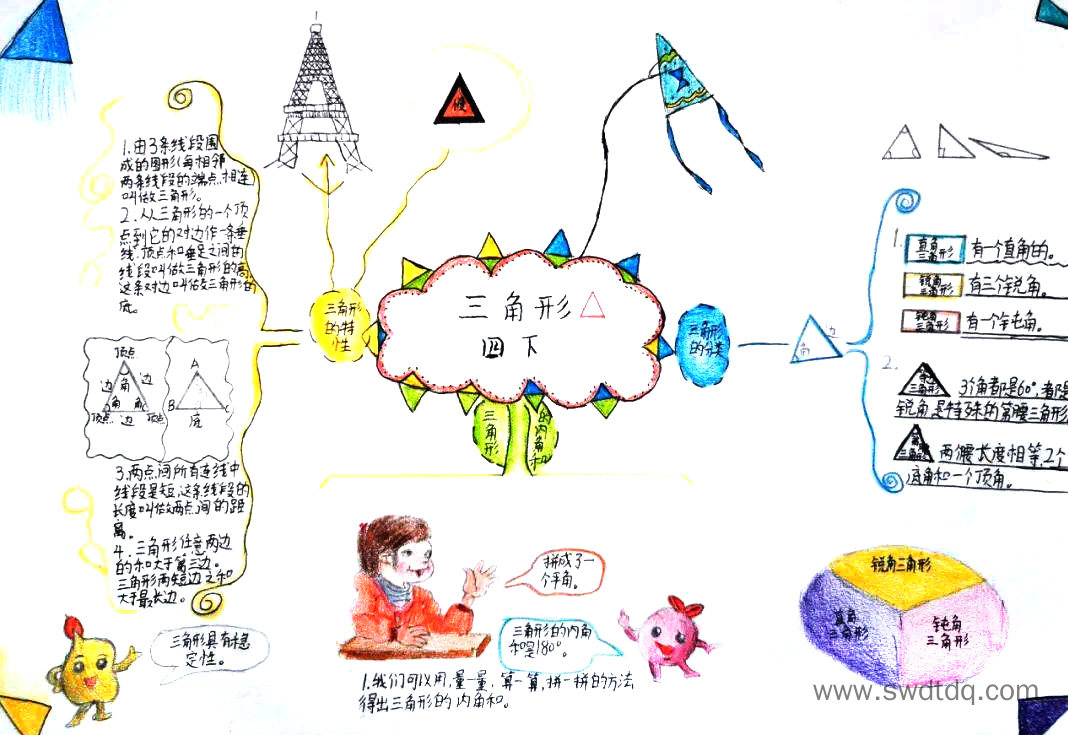 三角形
四下
慢
三角形
的特
性
1.由3条线段围
成的图形(每相邻
两条线段的端点相连)
叫做三角形。
2.从三角形的一个顶
点到它的对边作一条垂
线,顶点和垂足之间的
线段叫做三角形的高,
这条对边叫做三角形的
底。
顶点
边 角 边
角 角
顶点 边 顶点
A
B C
底
3.两点间所有连线中
线段最短,这条线段的
长度叫做两点间的距
离。
4.三角形任意两边
的和大于第三边。
三角形两短边之和
大于最长边。
三角形具有稳
定性。
三角形
的内角和
拼成了一
个平角。
三角形的内角
和是180°。
1.我们可以用,量一量,算一算,拼一拼的方法
得出三角形的内角和。
三角形
的分类
边
角
1.
直角
三角形
有一个直角的。
锐角
三角形
有三个锐角。
钝角
三角形
有一个钝角。
2.
三角形
3个角都是60°,都是
锐角是特殊的等腰三角形
两腰长度相等,2个
底角和一个顶角。
锐角三角形
直角
三角形
钝角
三角形
www.swdtdq.com